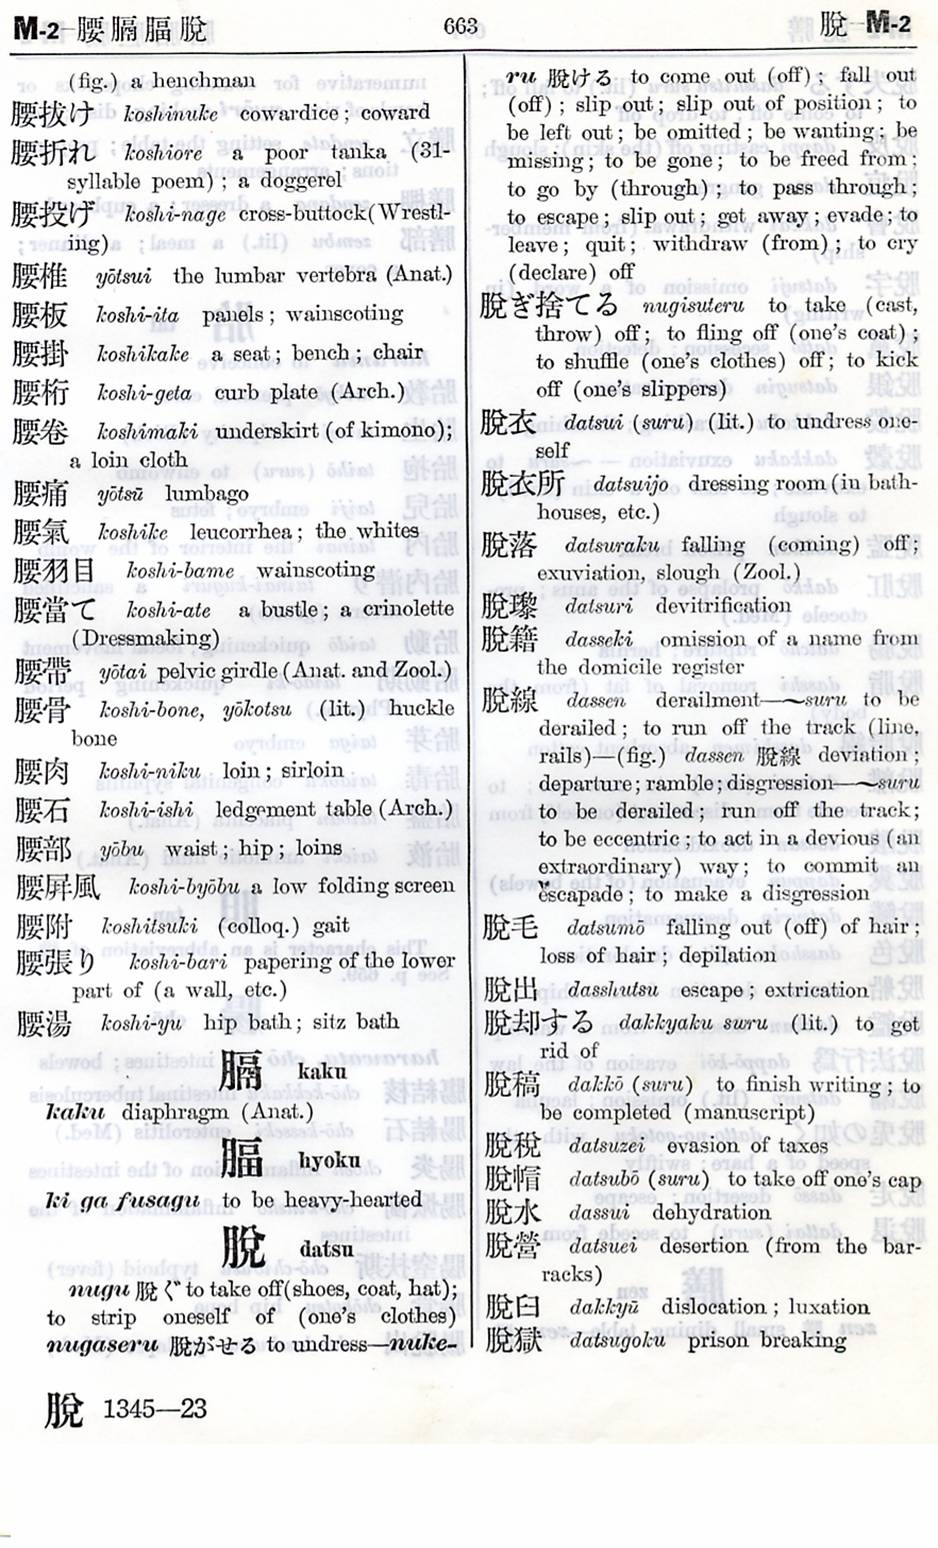 M-2—腰膈腷脫
663
脫—M-2
(fig.) a henchman
腰抜け koshinuke cowardice; coward
腰折れ koshiore a poor tanka (31-
syllable poem); a doggerel
腰投げ koshi-nage cross-buttock(Wrestl-
ing)
腰椎 yōtsui the lumbar vertebra (Anat.)
腰板 koshi-ita panels; wainscoting
腰掛 koshikake a seat; bench; chair
腰桁 koshi-geta curb plate (Arch.)
腰卷 koshimaki underskirt (of kimono);
a loin cloth
腰痛 yōtsū lumbago
腰氣 koshike leucorrhea; the whites
腰羽目 koshi-bame wainscoting
腰當て koshi-ate a bustle; a crinolette
(Dressmaking)
腰帶 yōtai pelvic girdle (Anat. and Zool.)
腰骨 koshi-bone, yōkotsu (lit.) huckle
bone
腰肉 koshi-niku loin; sirloin
腰石 koshi-ishi ledgement table (Arch.)
腰部 yōbu waist; hip; loins
腰屏風 koshi-byōbu a low folding screen
腰附 koshitsuki (colloq.) gait
腰張り koshi-bari papering of the lower
part of (a wall, etc.)
腰湯 koshi-yu hip bath; sitz bath
膈 kaku
kaku diaphragm (Anat.)
腷 hyoku
ki ga fusagu to be heavy-hearted
脫 datsu
nugu 脫ぐ to take off(shoes, coat, hat);
to strip oneself of (one's clothes)
nugaseru 脫がせる to undress—nuke-
ru 脫ける to come out (off); fall out
(off); slip out; slip out of position; to
be left out; be omitted; be wanting; be
missing; to be gone; to be freed from;
to go by (through); to pass through;
to escape; slip out; get away; evade; to
leave; quit; withdraw (from); to cry
(declare) off
脫ぎ捨てる nugisuteru to take (cast,
throw) off; to fling off (one's coat);
to shuffle (one's clothes) off; to kick
off (one's slippers)
脫衣 datsui (suru) (lit.) to undress one-
self
脫衣所 datsuijo dressing room (in bath-
houses, etc.)
脫落 datsuraku falling (coming) off;
exuviation, slough (Zool.)
脫璨 datsuri devitrification
脫籍 dasseki omission of a name from
the domicile register
脫線 dassen derailment—〜suru to be
derailed; to run off the track (line,
rails)—(fig.) dassen 脫線 deviation;
departure; ramble; disgression—〜suru
to be derailed; run off the track;
to be eccentric; to act in a devious (an
extraordinary) way; to commit an
escapade; to make a disgression
脫毛 datsumō falling out (off) of hair;
loss of hair; depilation
脫出 dasshutsu escape; extrication
脫却する dakkyaku suru (lit.) to get
rid of
脫稿 dakkō (suru) to finish writing; to
be completed (manuscript)
脫稅 datsuzei evasion of taxes
脫帽 datsubō (suru) to take off one's cap
脫水 dassui dehydration
脫營 datsuei desertion (from the bar-
racks)
脫臼 dakkyū dislocation; luxation
脫獄 datsugoku prison breaking
脫 1345—23